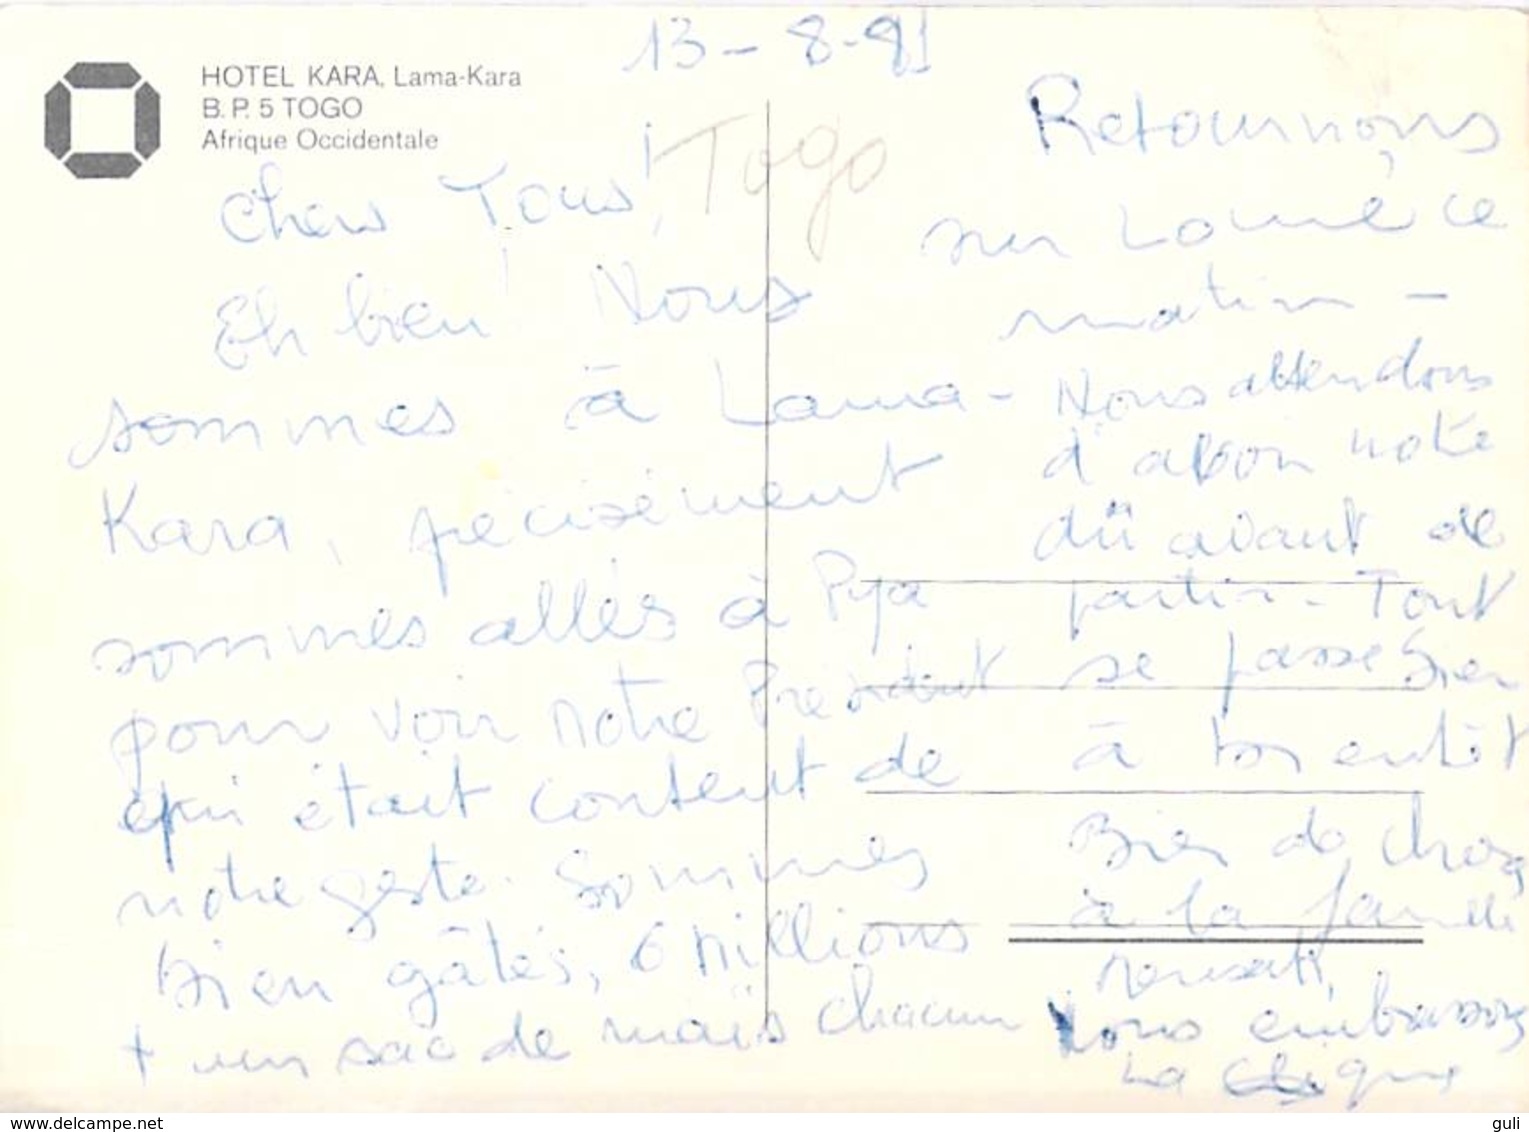 13-8-91
HOTEL KARA, Lama-Kara
B.P. 5 TOGO
Afrique Occidentale
Togo
Chers Tous,
Eh bien! Nous
sommes à Lama-
Kara, précisément
sommes allés à Pya
pour voir notre Président
qui était content de
notre geste. Sommes
bien gâtés, 6 Millions
+ un sac de maïs chacun
Retournons
sur Lomé ce
matin -
Nous attendons
d'avoir notre
dû avant de
partir - Tout
se passe bien
à bientôt
Bien de choses
à la famille
Nous embrassons
La clique
delcampe.net
guli